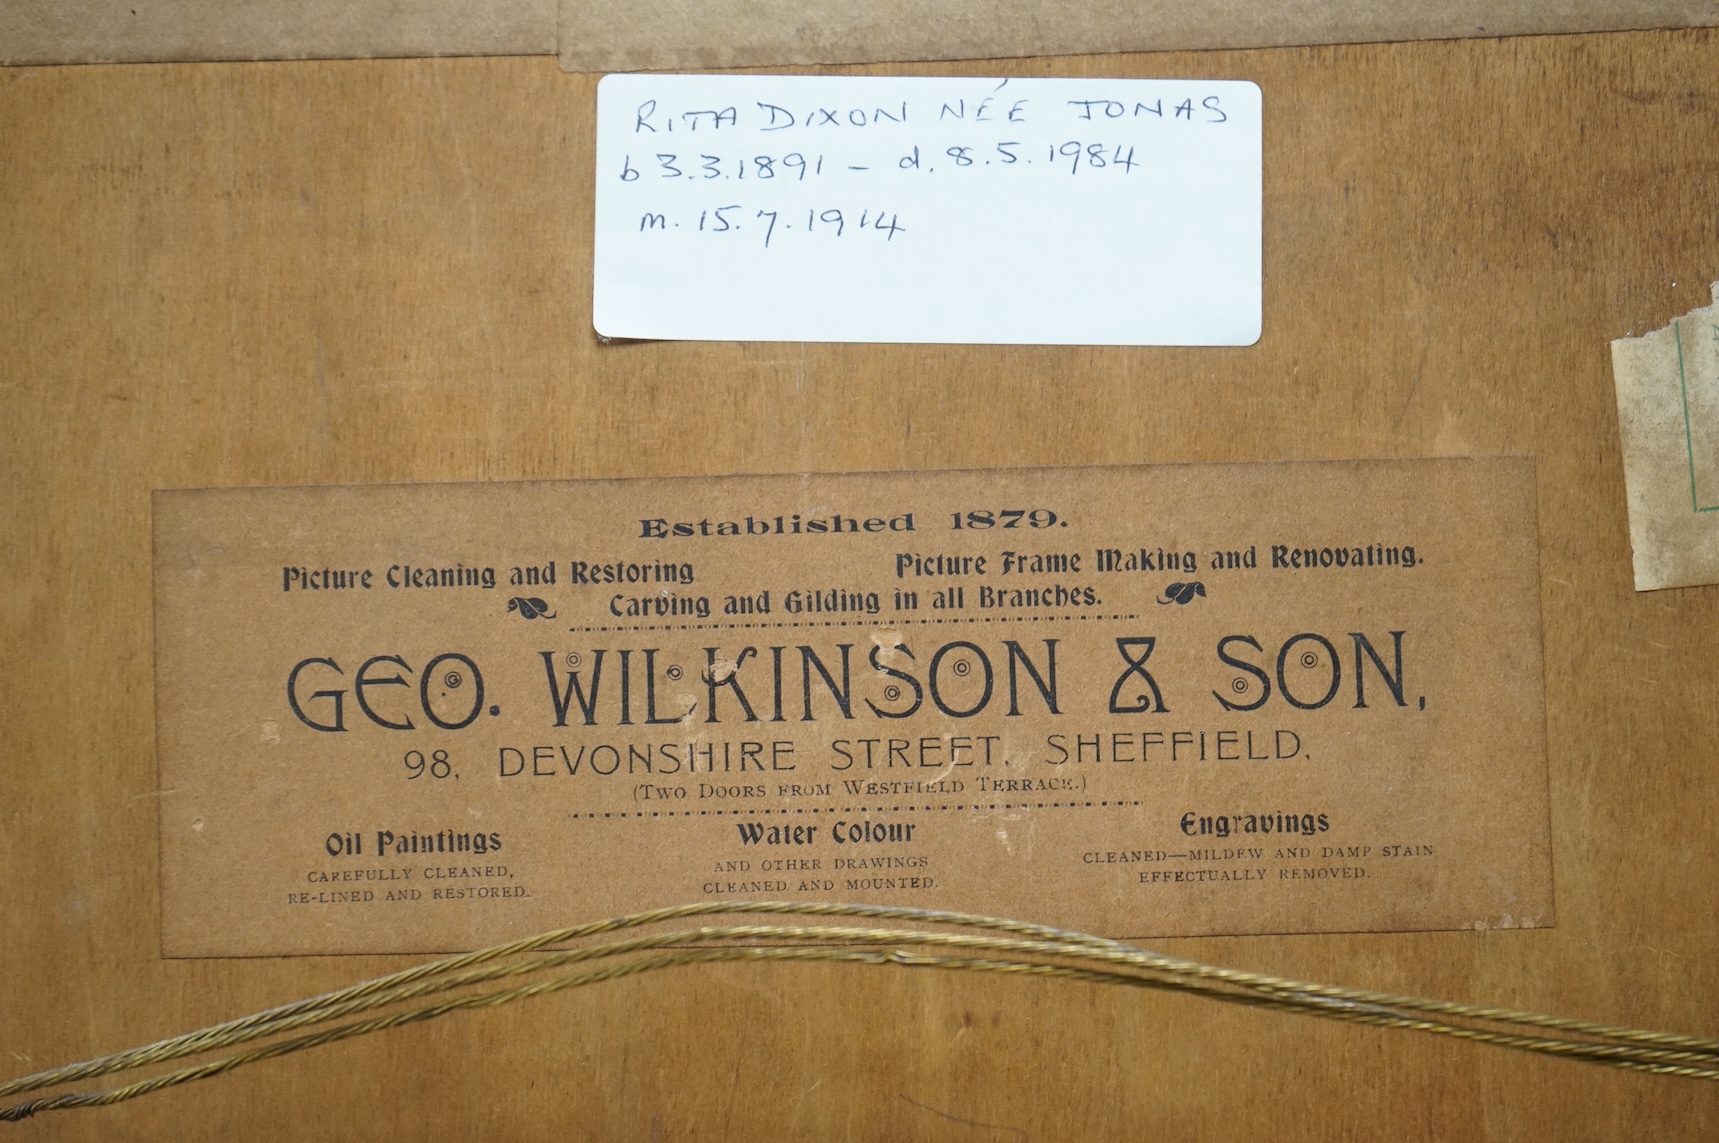 RITA DIXON NÉE JONAS
b 3.3.1891 – d. 8.5.1984
m. 15.7.1914
Established 1879.
Picture Cleaning and Restoring Picture Frame Making and Renovating.
Carving and Gilding in all Branches.
GEO. WILKINSON & SON,
98, DEVONSHIRE STREET, SHEFFIELD,
(TWO DOORS FROM WESTFIELD TERRACE.)
Oil Paintings
CAREFULLY CLEANED,
RE-LINED AND RESTORED.
Water Colour
AND OTHER DRAWINGS
CLEANED AND MOUNTED.
Engravings
CLEANED—MILDEW AND DAMP STAIN
EFFECTUALLY REMOVED.